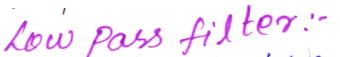 Low pass filter:-